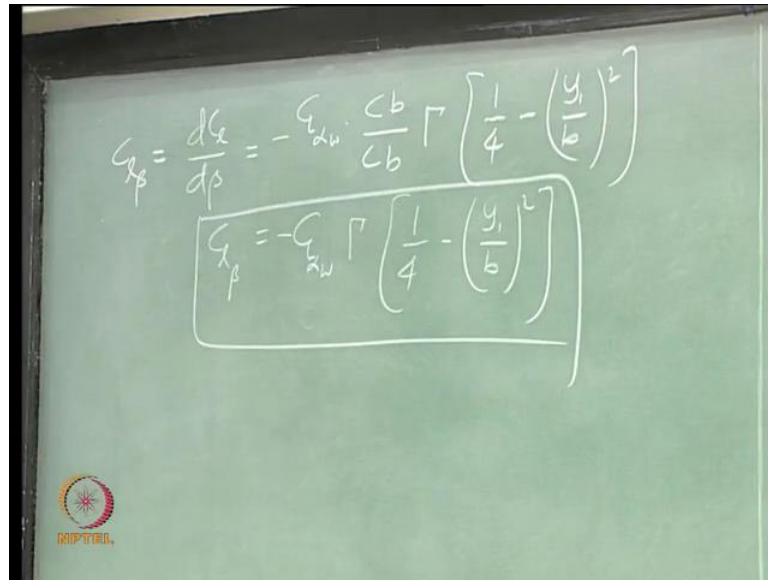 C_{l_β} = dC_l/dβ = -C_{L_{αw}} · cb/cb Γ [1/4 - (y_1/b)^2]
C_{l_β} = -C_{L_{αw}} Γ [1/4 - (y_1/b)^2]
NPTEL